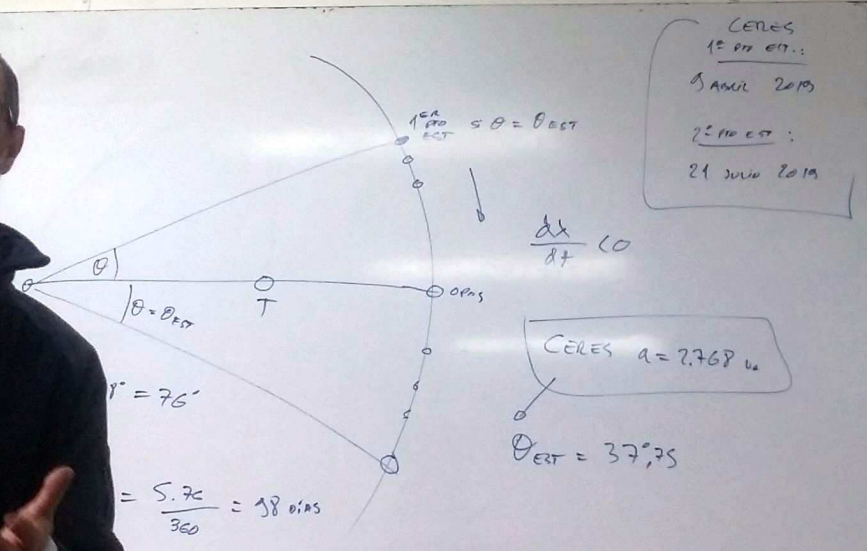 CERES
1er PTO EST.:
9 ABRIL 2019
2º PTO EST:
21 JULIO 2019
1ER PTO EST
θ = θEST
dλ/dt <0
θ
T
OPOS
θ = θEST
CERES a = 2.768 u.
8° = 76°
θEST = 37°,75
= 5.76/360 = 98 DÍAS